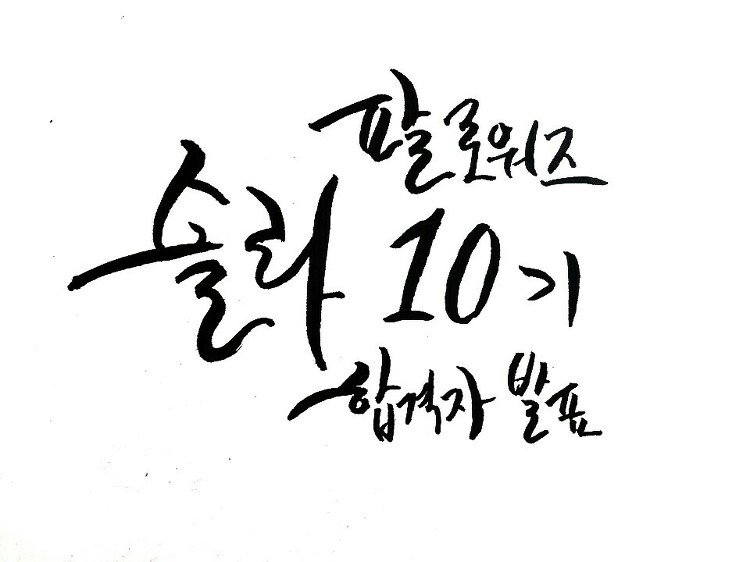 팔로워즈
솔라 10기
합격자 발표